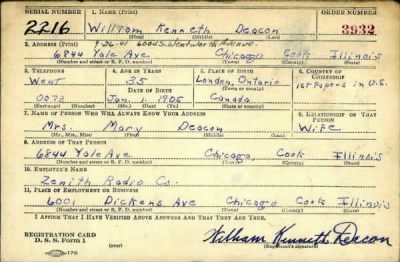 SERIAL NUMBER 1. NAME (Print) ORDER NUMBER
2216 William Kenneth Deacon 3932
(First) (Middle) (Last)
2. ADDRESS (Print) 9-26-41 6004 S. Wentworth Avenue.
6844 Yale Ave Chicago Cook Illinois
(Number and street or R. F. D. number) (Town) (County) (State)
3. TELEPHONE 4. AGE IN YEARS 5. PLACE OF BIRTH 6. COUNTRY OF CITIZENSHIP
Went 35 London, Ontario 1st Papers in U.S.
DATE OF BIRTH (Town or county)
0078 Jan. 1 1905 Canada
(Exchange) (Number) (Mo.) (Day) (Yr.) (State or country)
7. NAME OF PERSON WHO WILL ALWAYS KNOW YOUR ADDRESS 8. RELATIONSHIP OF THAT PERSON
Mrs. Mary Deacon Wife
(Mr., Mrs., Miss) (First) (Middle) (Last)
9. ADDRESS OF THAT PERSON
6844 Yale Ave Chicago, Cook Illinois
(Number and street or R. F. D. number) (Town) (County) (State)
10. EMPLOYER'S NAME
Zenith Radio Co.
11. PLACE OF EMPLOYMENT OR BUSINESS
6001 Dickens Ave Chicago Cook Illinois
(Number and street or R. F. D. number) (Town) (County) (State)
I AFFIRM THAT I HAVE VERIFIED ABOVE ANSWERS AND THAT THEY ARE TRUE.
REGISTRATION CARD
D. S. S. Form 1 (over) William Kenneth Deacon
16-170 (Registrant's signature)